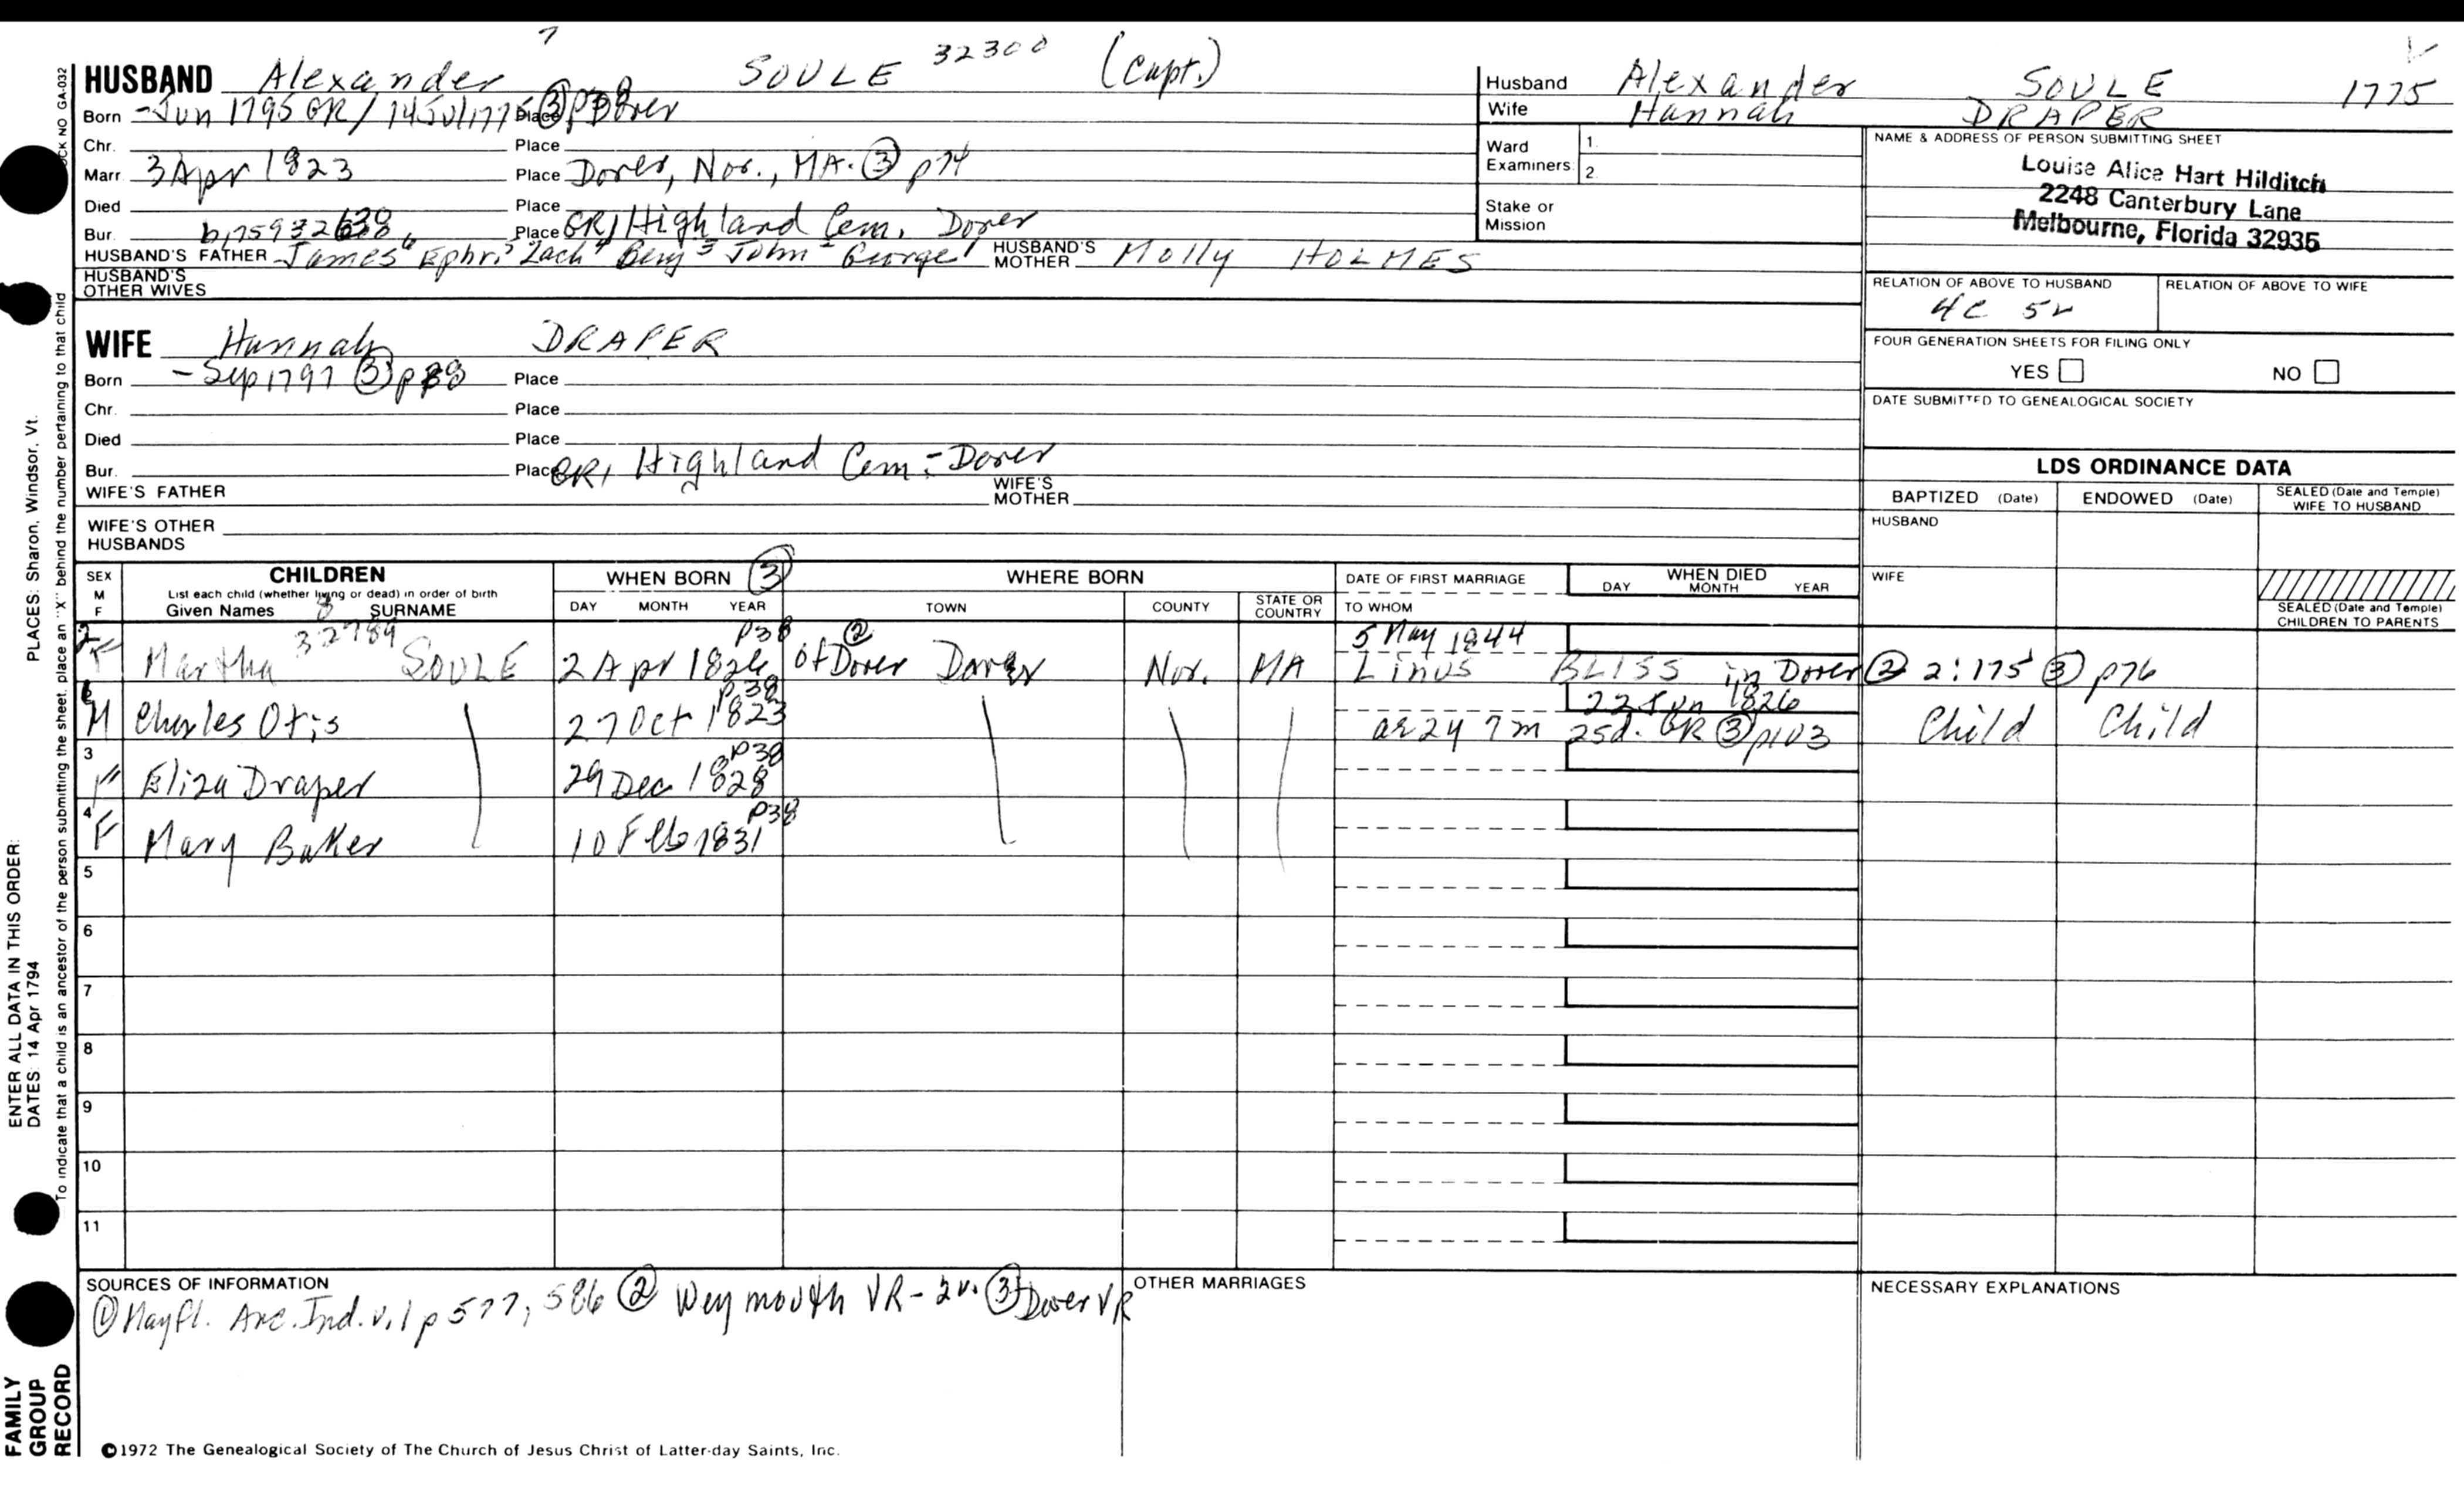 7
HUSBAND Alexander SOULE 32300 (Capt.)
Born -Jun 1795 GR/ 14 Jul 1775 Place ③ p38 Dover
Chr. Place
Marr. 3 Apr 1823 Place Dover, Nor., MA. ③ p74
Died Place
Bur. Place GR1 Highland Cem. Dover
HUSBAND'S FATHER James6 Ephr.5 Zach4 Benj3 John2 George1 HUSBAND'S MOTHER Molly HOLMES
HUSBAND'S OTHER WIVES
WIFE Hannah DRAPER
Born - Sep 1797 ③ p38 Place
Chr. Place
Died Place
Bur. Place GR1 Highland Cem - Dover
WIFE'S FATHER WIFE'S MOTHER
WIFE'S OTHER HUSBANDS
Husband Alexander SOULE 1775
Wife Hannah DRAPER
Ward Examiners: 1. 2.
Stake or Mission
NAME & ADDRESS OF PERSON SUBMITTING SHEET
Louise Alice Hart Hilditch
2248 Canterbury Lane
Melbourne, Florida 32935
RELATION OF ABOVE TO HUSBAND RELATION OF ABOVE TO WIFE
4C 5r
FOUR GENERATION SHEETS FOR FILING ONLY
YES NO
DATE SUBMITTED TO GENEALOGICAL SOCIETY
LDS ORDINANCE DATA
BAPTIZED (Date) ENDOWED (Date) SEALED (Date and Temple) WIFE TO HUSBAND
HUSBAND
WIFE
SEALED (Date and Temple) CHILDREN TO PARENTS
SEX M F
CHILDREN
List each child (whether living or dead) in order of birth
Given Names 8 SURNAME
WHEN BORN ③
DAY MONTH YEAR
WHERE BORN
TOWN COUNTY STATE OR COUNTRY
DATE OF FIRST MARRIAGE
TO WHOM
WHEN DIED
DAY MONTH YEAR
32789 p38 ② 5 May 1844
F Martha SOULE 2 Apr 1826 of Dover Dover Nor. MA Linus BLISS in Dover ② 2:175 ③ p76
p38 22 Jun 1826
M Charles Otis 27 Oct 1823 ae 2y 7m 25d. GR ③ p103 Child Child
3 p38
F Eliza Draper 29 Dec 1828
4 p38
F Mary Baker 10 Feb 1831
5
6
7
8
9
10
11
SOURCES OF INFORMATION
① Mayfl. Anc. Ind. v.1 p 577, 586 ② Weymouth VR - 2v. ③ Dover VR
OTHER MARRIAGES
NECESSARY EXPLANATIONS
©1972 The Genealogical Society of The Church of Jesus Christ of Latter-day Saints, Inc.
FAMILY GROUP RECORD
ENTER ALL DATA IN THIS ORDER:
DATES: 14 Apr 1794
PLACES: Sharon, Windsor, Vt.
To indicate that a child is an ancestor of the person submitting the sheet, place an "X" behind the number pertaining to that child
CK NO GA-032